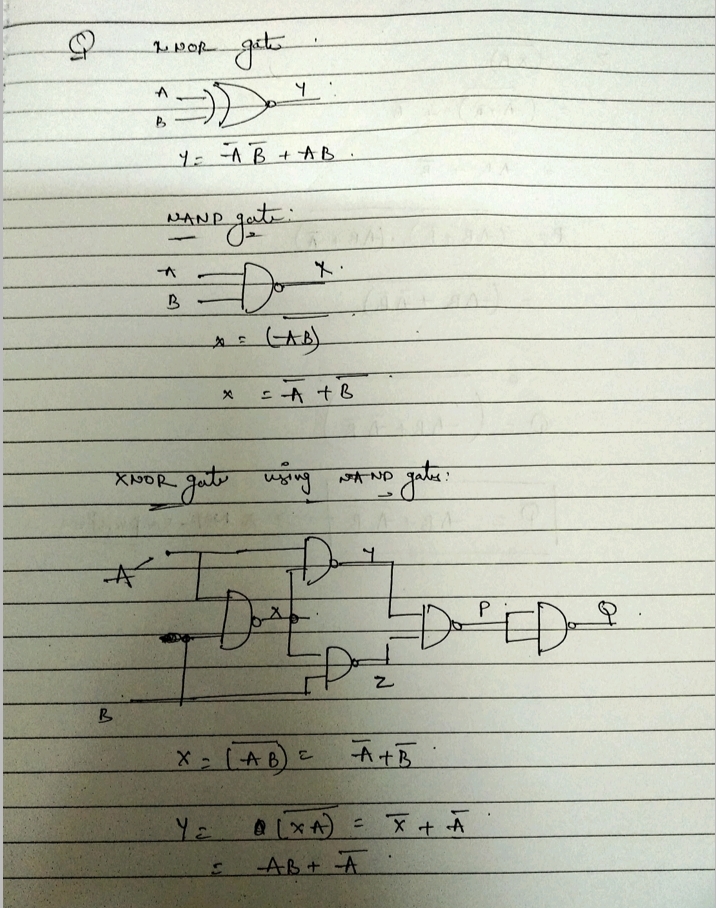 Q XNOR gate :
A
B
Y :
Y = A̅ B̅ + AB .
NAND gate :
A
B
X .
x = (A̅B̅)
x = A̅ + B̅
XNOR gate using NAND gates :
A
Y
X
P
Q .
Z
B
X = (A̅B̅) = A̅ + B̅
Y = (X̅A̅) = X̅ + A̅
= AB + A̅